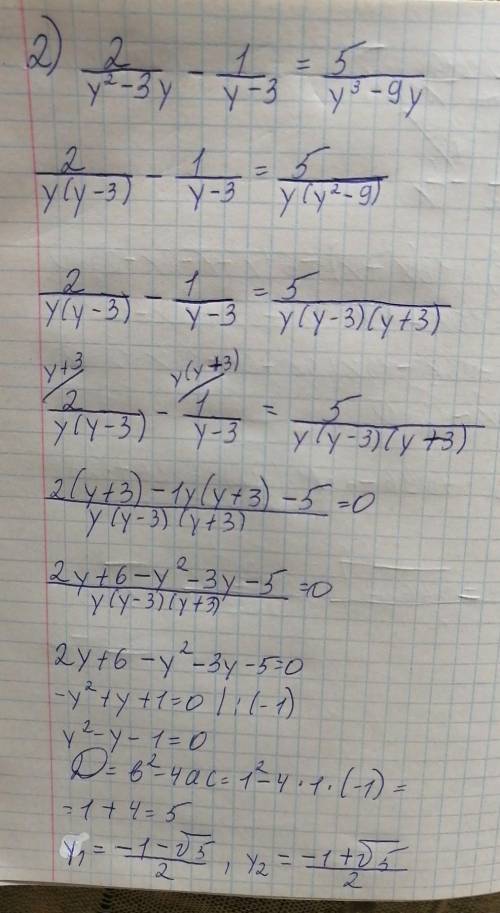 2) 2/(y²-3y) - 1/(y-3) = 5/(y³-9y)
2/(y(y-3)) - 1/(y-3) = 5/(y(y²-9))
2/(y(y-3)) - 1/(y-3) = 5/(y(y-3)(y+3))
y+3 y(y+3)
2/(y(y-3)) - 1/(y-3) = 5/(y(y-3)(y+3))
(2(y+3)-1y(y+3)-5)/(y(y-3)(y+3)) = 0
(2y+6-y²-3y-5)/(y(y-3)(y+3)) = 0
2y+6-y²-3y-5=0
-y²+y+1=0 |:(-1)
y²-y-1=0
D=в²-4ac=1²-4·1·(-1)=
=1+4=5
y₁=(-1-√5)/2, y₂=(-1+√5)/2